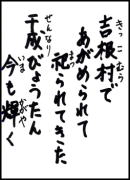 吉根村で
あがめられて
祀られてきた
千成びょうたん
今も輝く
きっこむら
まつ
せんなり
いま
かがや